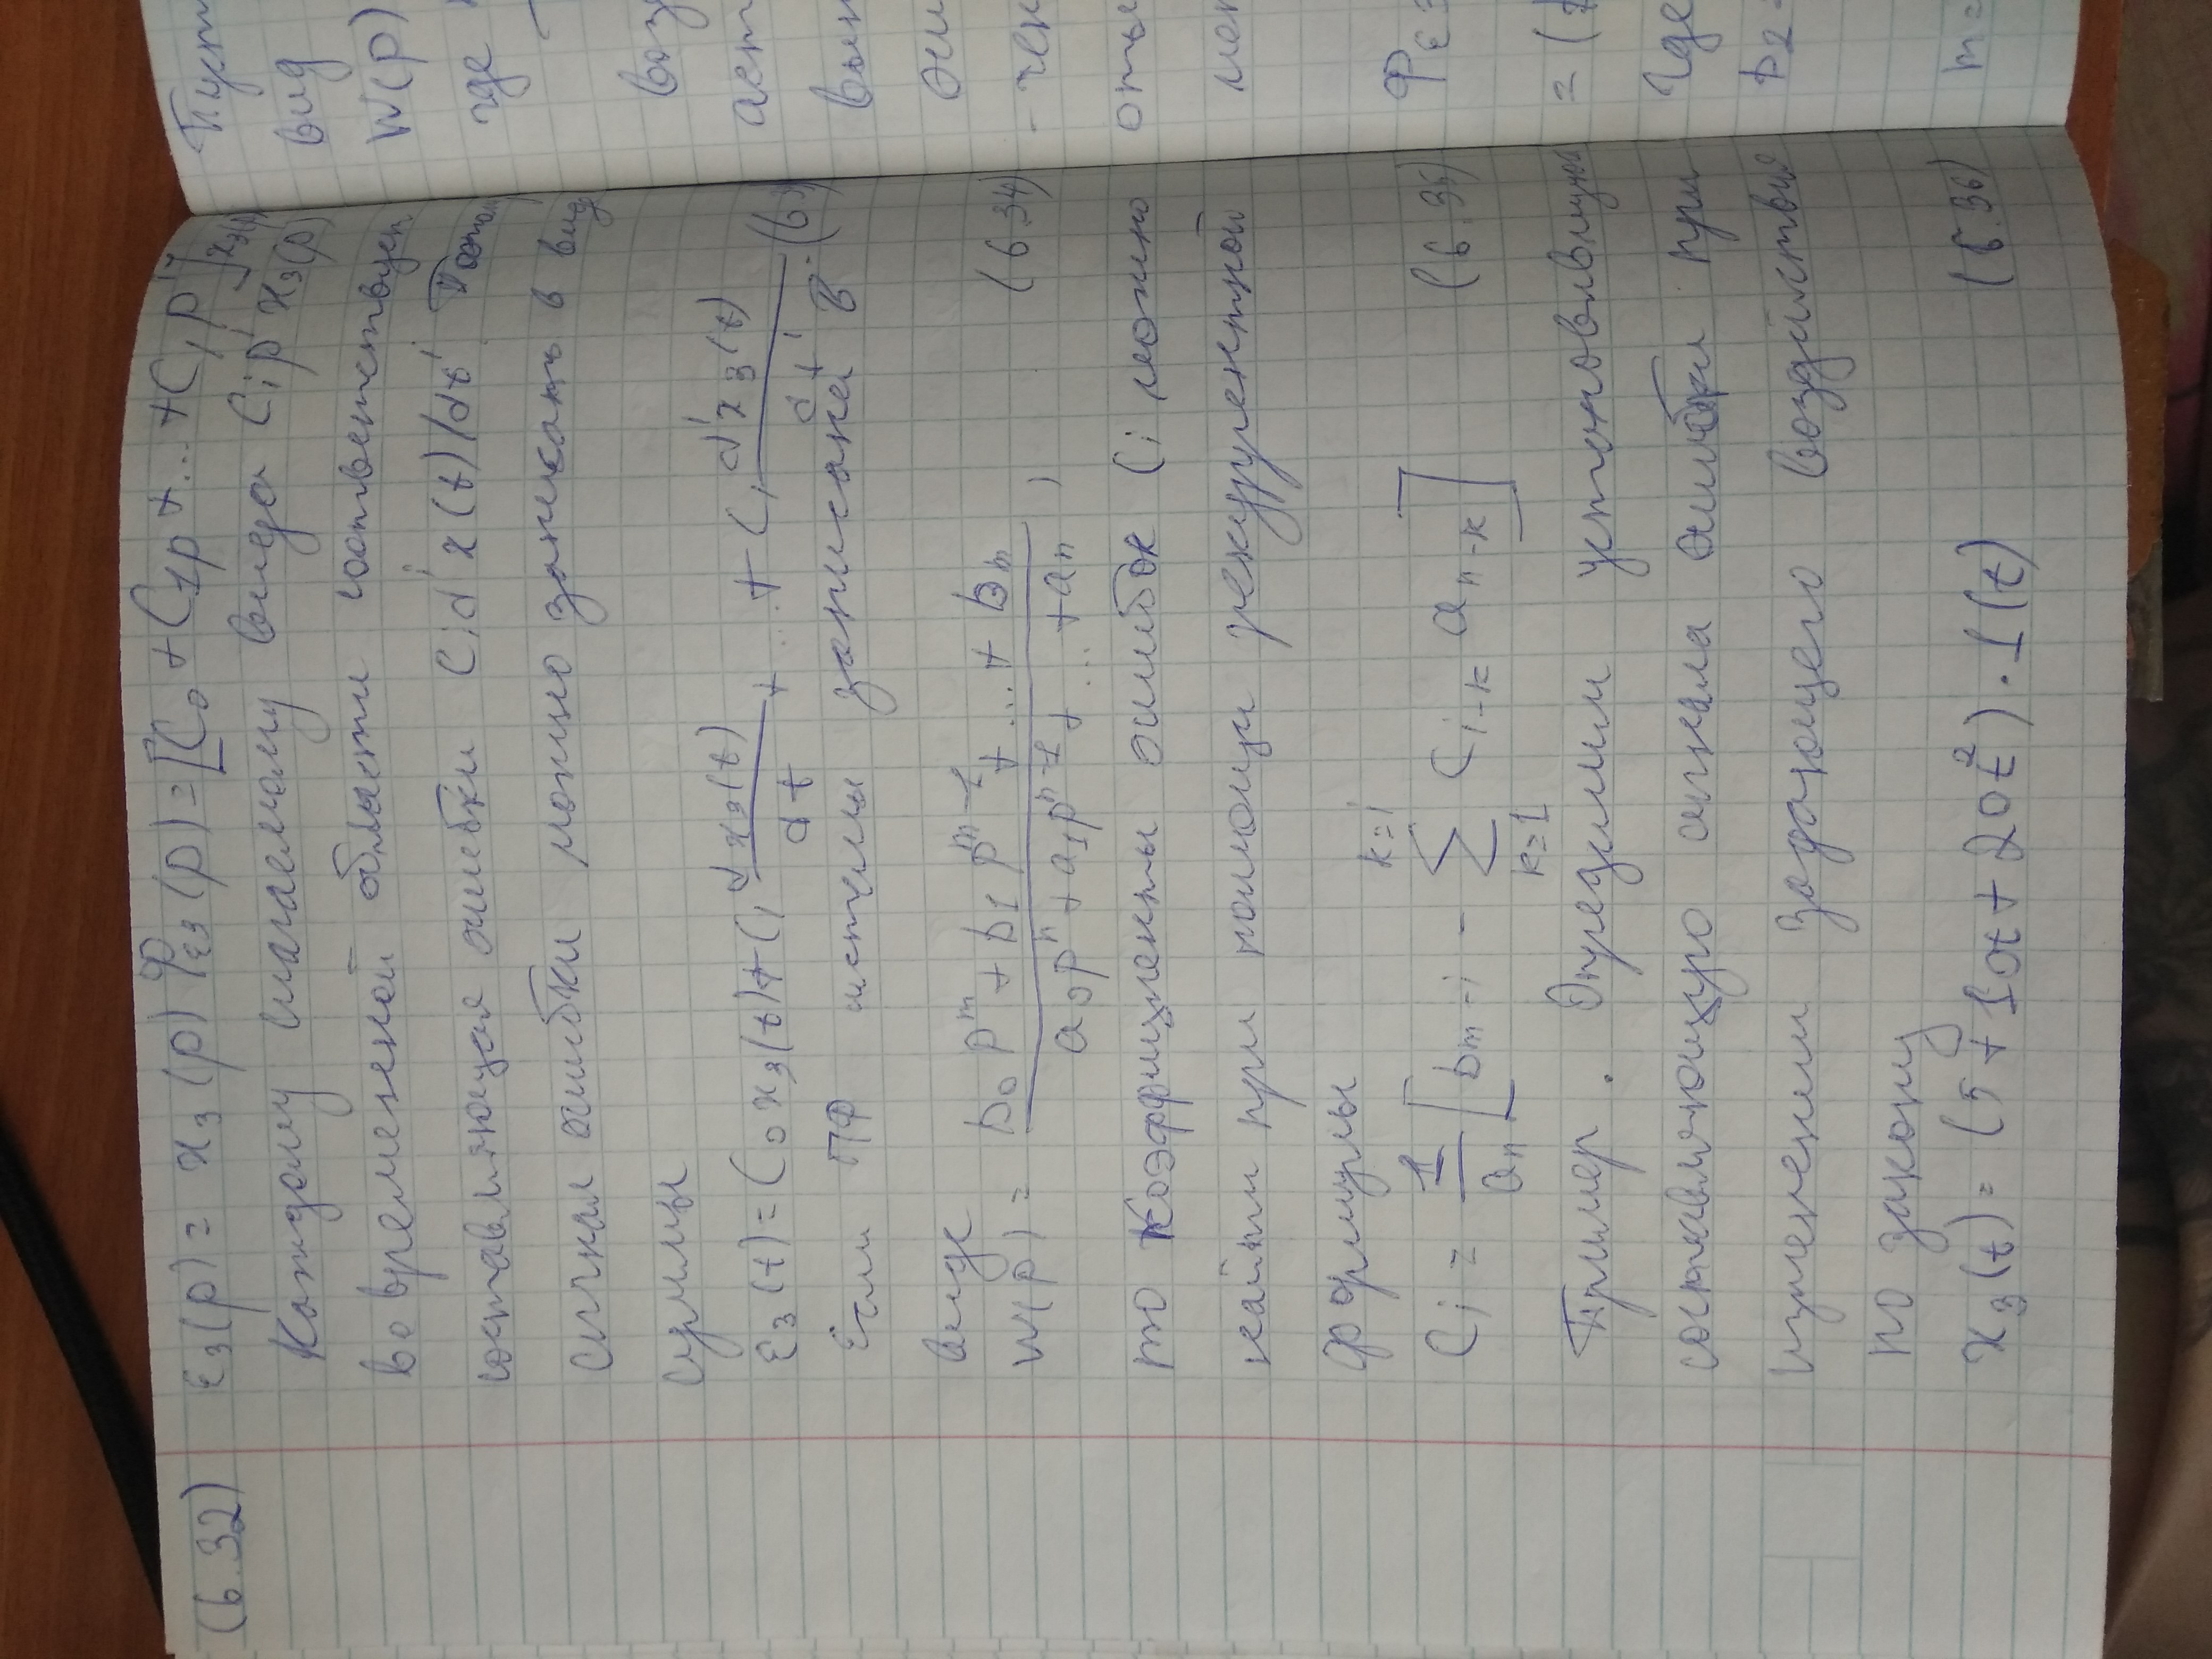 (6.32) ε₃(p) = x₃(p) Φε₃(p) = [C₀ + C₁p + ... + Cᵢpⁱ]x₃(p)
Каждому слагаемому вида Cᵢpⁱ x₃(p)
во временной области соответствует
составляющая ошибки Cᵢdⁱx(t)/dtⁱ Поэтому
сигнал ошибки можно записать в виде
суммы
ε₃(t) = C₀x₃(t) + C₁ dx₃(t)/dt + ... + Cᵢ dⁱx₃(t)/dtⁱ (6.3
Если ПФ системы записана в
виде
W(p) = (b₀pᵐ + b₁pᵐ⁻¹ + ... + bₘ)/(a₀pⁿ + a₁pⁿ⁻¹ + ... + aₙ), (6.34)
то коэффициенты ошибок Cᵢ можно
найти при помощи рекуррентной
формулы
Cᵢ = 1/aₙ [bₘ₋ᵢ - ∑ₖ₌₁ᵏ⁼ⁱ Cᵢ₋ₖ aₙ₋ₖ] (6.35)
Пример. Определим установившуюся
составляющую сигнала ошибки при
изменении задающего воздействия
по закону
x₃(t) = (5 + 10t + 20t²)·1(t) (6.36)
Пуст
вид
W(p)
где
воз
аст
вып
оши
-чен
оты
мот
Φε₃
= (
где
b₂
m =